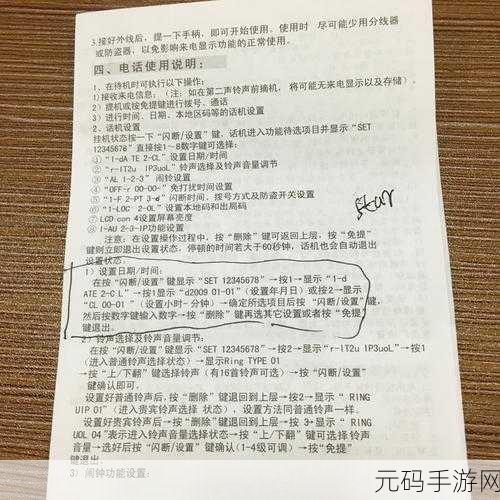 3.接好外线后，提一下手柄，即可开始使用。使用时 尽可能少用分线器
或防盗器，以免影响来电显示功能的正常使用。
四、电话使用说明：
1、在待时可执行以下操作：
1)接收来电信息：（注：如在第二声铃声前摘机，将可能无来电显示以及存储）。
2) 提机或按免提键进行拨号、通话
3) 进行时间、日期、本地区码等的话机设置
2、话机设置
挂机状态按一下“闪断/设置”键，话机进入功能待选项目并显示“SET
12345678”直接按1~8数字键可选择：
①“1-dA TE 2-CL”设置日期/时间
②“r-1T2u 1P3uoL”铃声选择及铃声音量调节
③“AL 1-2-3” 闹铃设置
④“OFF-r 00-00-”免打扰时间设置
⑤“1-F 2-PT 3-d”闪断时间、拨号方式及防盗开关设置
⑥“1-LOC 2-OL”设置本地码和出局码
⑦LCD con 4设置屏幕亮度
⑧1-AU 2-3-IP功能设置
注意：在设置操作过程中，按“删除”键可返回上层，按“免提”
键则立即退出设置状态，停顿的时间若大于60秒钟，话机也会自动退出
设置状态。
1）设置日期/时间：
在按“闪断/设置”键显示“SET 12345678”→按1→显示“1-d
ATE 2-C L”→按1显示“d2009 01-01”（设置年月日）或按2→显示
“CL 00-01 ”（设置小时-分钟）→确定所选项目后按“闪断/设置”键，
然后按数字键输入数字→按“删除”键再选其它设置或者按“免提”
键退出。
2）铃声选择及铃声音量调节：
在按“闪断/设置”键显示“SET 12345678”→按2→显示“r-1T2u 1P3uoL”→按1
（进入普通铃声选择状态）→显示Ring TYPE 01
→按“上/下翻”键选择铃声（有16首铃声可选）→按“闪断/设置”
键确认即可.
设置好普通铃声后，按“删除”键退回到上层→按2→显示“ RING
UIP 01”（进入贵宾铃声选择 状态），设置方法同普通铃声一样。
设置好贵宾铃声后→按“删除”键退回到上层→按 3→显示“ RING
UOL 04”表示进入铃声音量选择状态→按“上/下翻”键可选择铃声
音量→选好后按“闪断/设置”键确认(1-4级可调)→按“免提”
键退出.
3）闹钟功能设置：
元码手游网